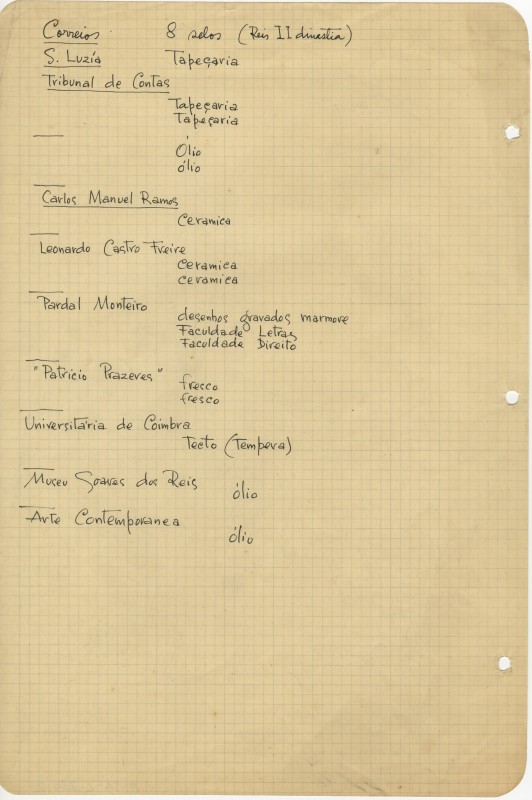 Correios 8 selos (Reis II dinastia)
S. Luzía Tapeçaria
Tribunal de Contas
Tapeçaria
Tapeçaria
Ólio
ólio
Carlos Manuel Ramos
Ceramica
Leonardo Castro Freire
ceramica
ceramica
Pardal Monteiro
desenhos gravados marmore
Faculdade Letras
Faculdade Direito
"Patricio Prazeres"
fresco
fresco
Universitária de Coimbra
Tecto (Tempera)
Museu Soares dos Reis
ólio
Arte Contemporanea
ólio